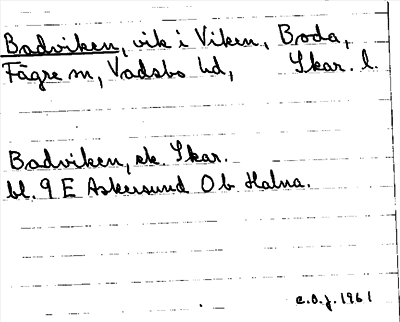 Badviken, vik i Viken, Boda,
Fägre sn, Vadsbo hd, Skar. l.
Badviken, ek. Skar.
bl. 9 E Askersund Ob Halna.
e.o.j. 1961